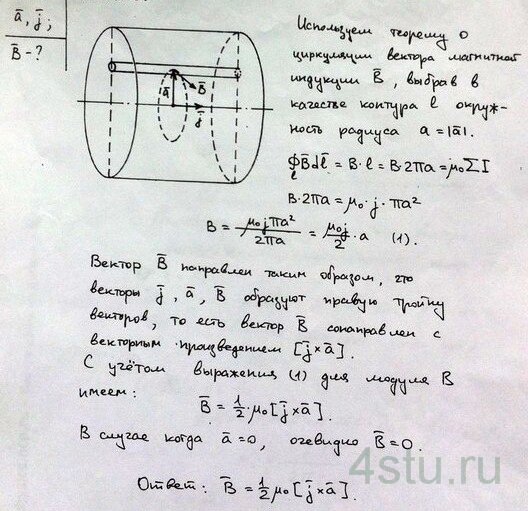 ā, j̄;
B̄ - ?
B̄
ā
j̄
Используем теорему о
циркуляции вектора магнитной
индукции B̄, выбрав в
качестве контура l окруж-
ность радиуса a = |ā|.
∮ₗ B̄dl̄ = B·l = B·2πa = μ₀ΣI
B·2πa = μ₀·j·πa²
B = μ₀jπa² / 2πa = μ₀j / 2 · a (1).
Вектор B̄ направлен таким образом, что
векторы j̄, ā, B̄ образуют правую тройку
векторов, то есть вектор B̄ сонаправлен с
векторным произведением [j̄×ā].
С учётом выражения (1) для модуля B
имеем:
B̄ = 1/2·μ₀[j̄×ā].
В случае когда ā=0, очевидно B̄=0.
4stu.ru
Ответ: B̄ = 1/2 μ₀[j̄×ā].